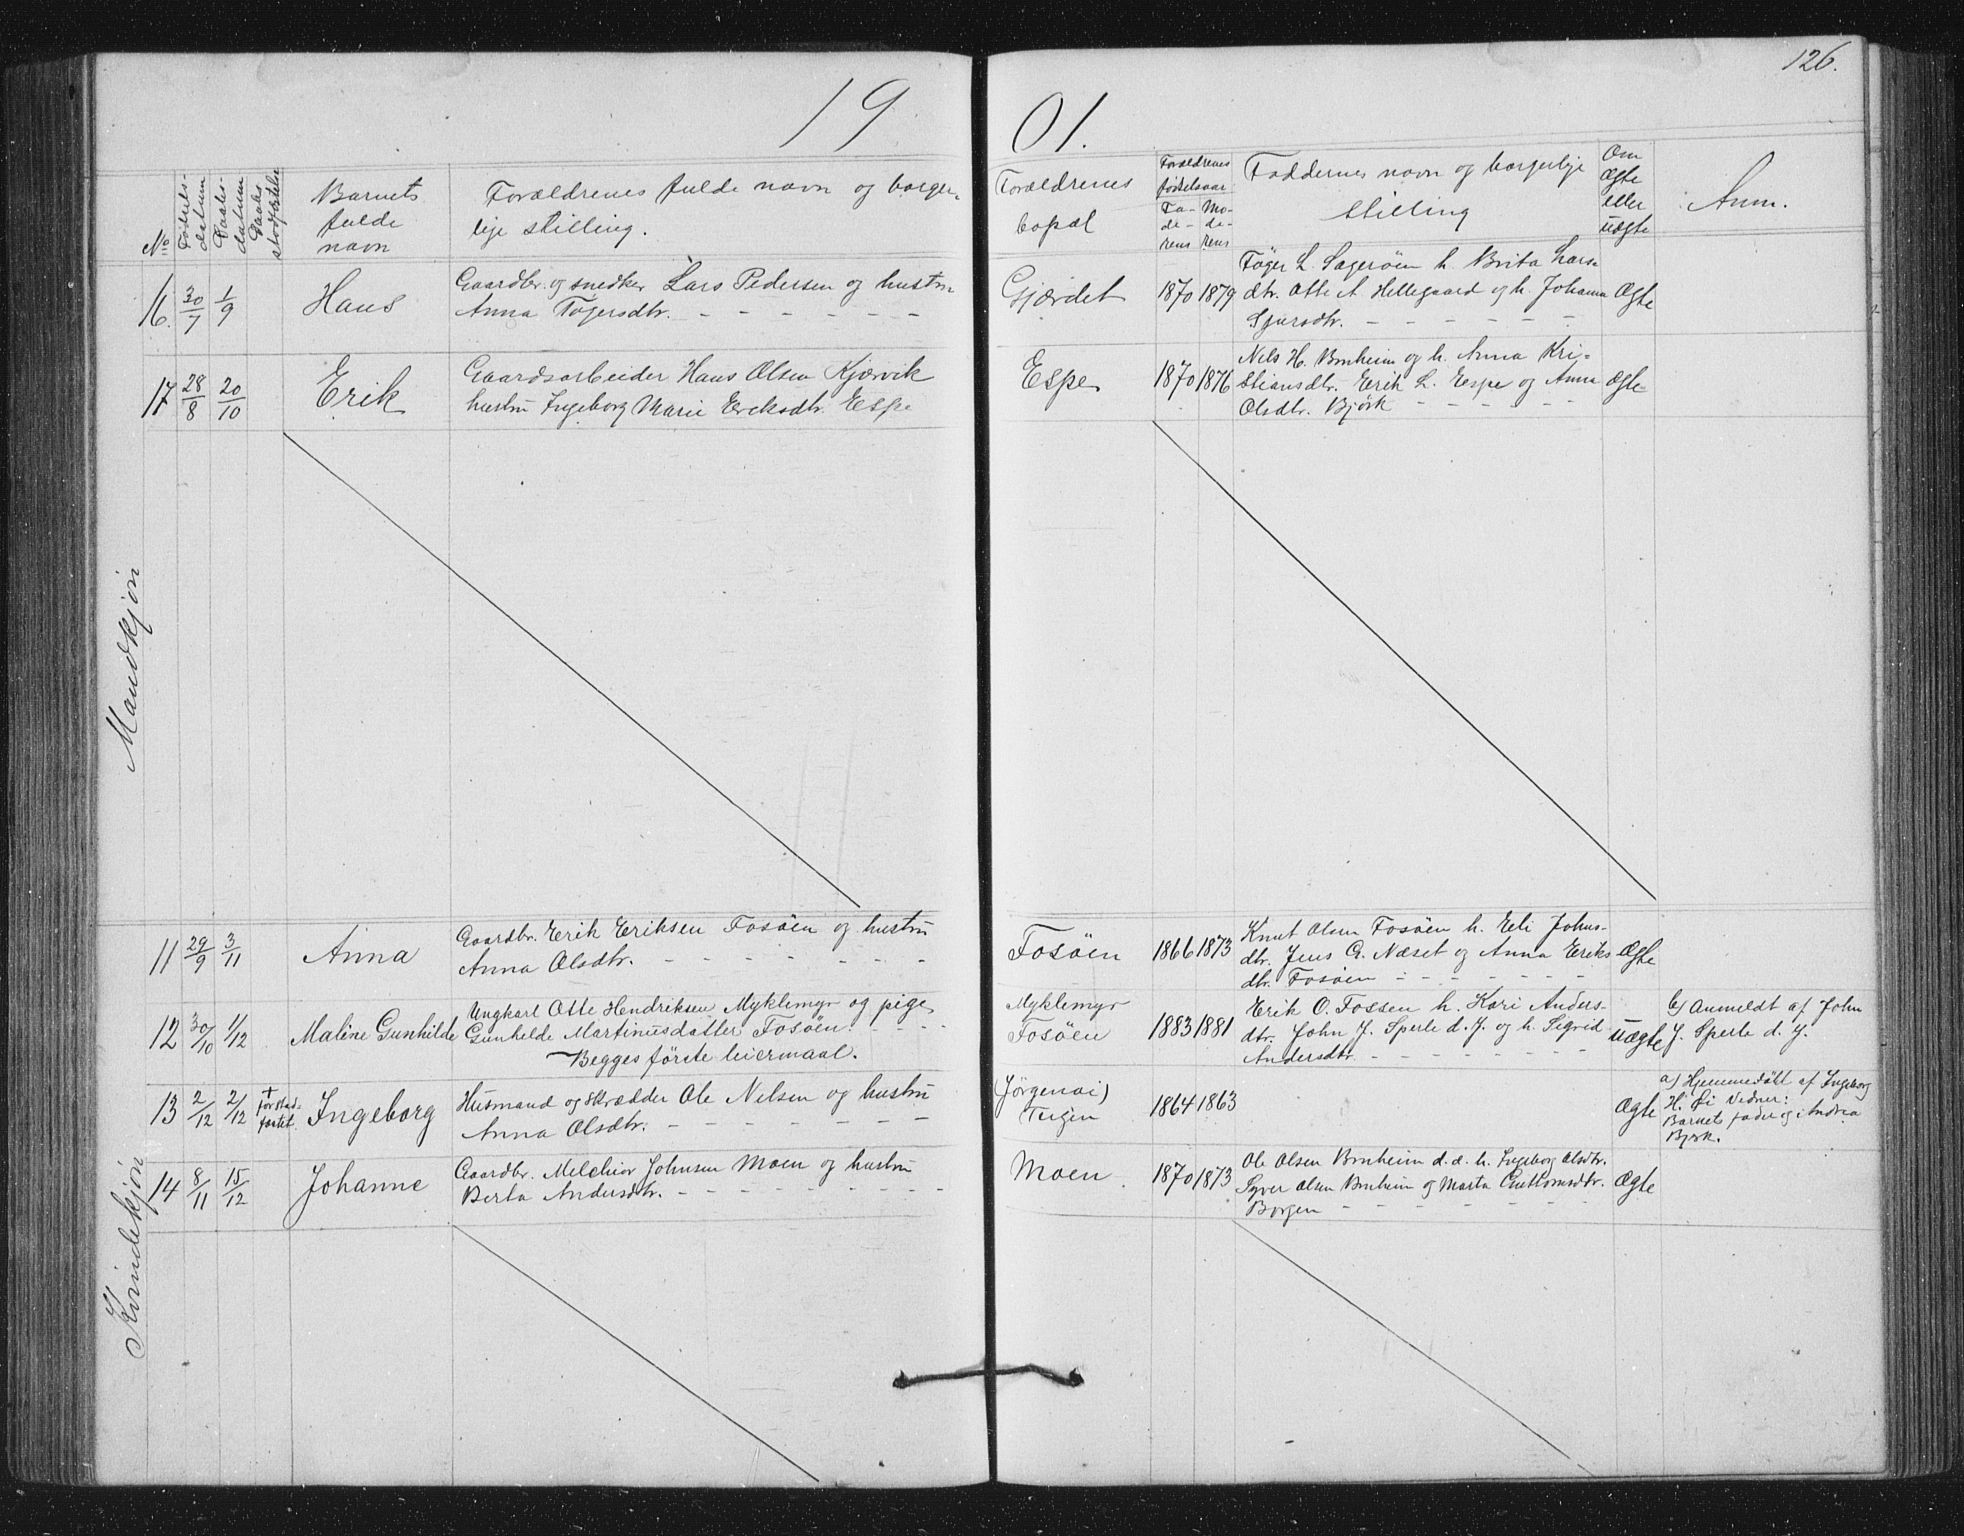 126.
19 01.
No
Fødsels-datum
Daabs-datum
Daabs stadfæstelse
Barnets fulde navn
Forældrenes fulde navn og borger-
lige stilling.
Forældrenes bopæl
Forældrenes fødselsaar
Fa-de-rens
Mo-de-rens
Faddernes navn og borgerlige
stilling
Om Ægte eller uægte
Anm.
Mandkjøn
16. 30/7 1/9 Hans
Gaardbr. og snedker Lars Pedersen og hustru
Anna Tøgersdtr.
Gjærdet 1870 1879
Tøger L. Sagerøen h. Brita Lars-
dtr. Otte A. Hellegaard og h. Johanna
Sjursdtr.
Ægte
17 28/8 20/10 Erik
Gaardsarbeider Hans Olsen Kjørvik
hustru Ingeborg Marie Eriksdtr. Espe
Espe 1870 1876
Nels H. Bruheim og h. Anna Kri-
stiansdtr. Erik L. Espe og Anna
Olsdtr. Bjørk
Ægte
Kvindekjøn
11 29/9 3/11 Anna
Gaardbr. Erik Eriksen Fosøen og hustru
Anna Olsdtr.
Fosøen 1866 1873
Knut Olsen Fosøen h. Eli Johns-
dtr. Jens G. Næset og Anna Eriks
dtr. Fosøen
Ægte
12 30/10 1/12 Maline Gunhilde
Ungkarl Otte Hendriksen Myklemyr og pige
Gunhilde Martinusdatter Fosøen.
Begges første leiermaal.
Myklemyr
Fosøen 1883 1881
Erik O. Fossen h. Kari Anders-
dtr. John J. Sperle d. y. og h. Sigrid
Andersdtr.
uægte
b) Anmeldt af John
J. Sperle d. y.
13 2/12 2/12 † før stad-fæstet. Ingeborg
Husmand og skrædder Ole Nelsen og hustru
Anna Olsdtr.
(Jørgenøi)
Teigen 1864 1863
Ægte
a) Hjemmedøbt af Ingeborg
H. Øi Vidner:
Barnets fader og Andrea
Bjørk.
14 8/11 15/12 Johanne
Gaardbr. Melchior Johnsen Moen og hustru
Berta Andersdtr.
Moen 1870 1873
Ole Olsen Bruheim d. æ. h. Ingeborg Olsdtr.
Syver Olsen Bruheim og Marta Guttormsdtr.
Borgen
Ægte